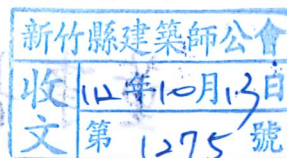 新竹縣建築師公會
收文
112年10月13日
第1275號